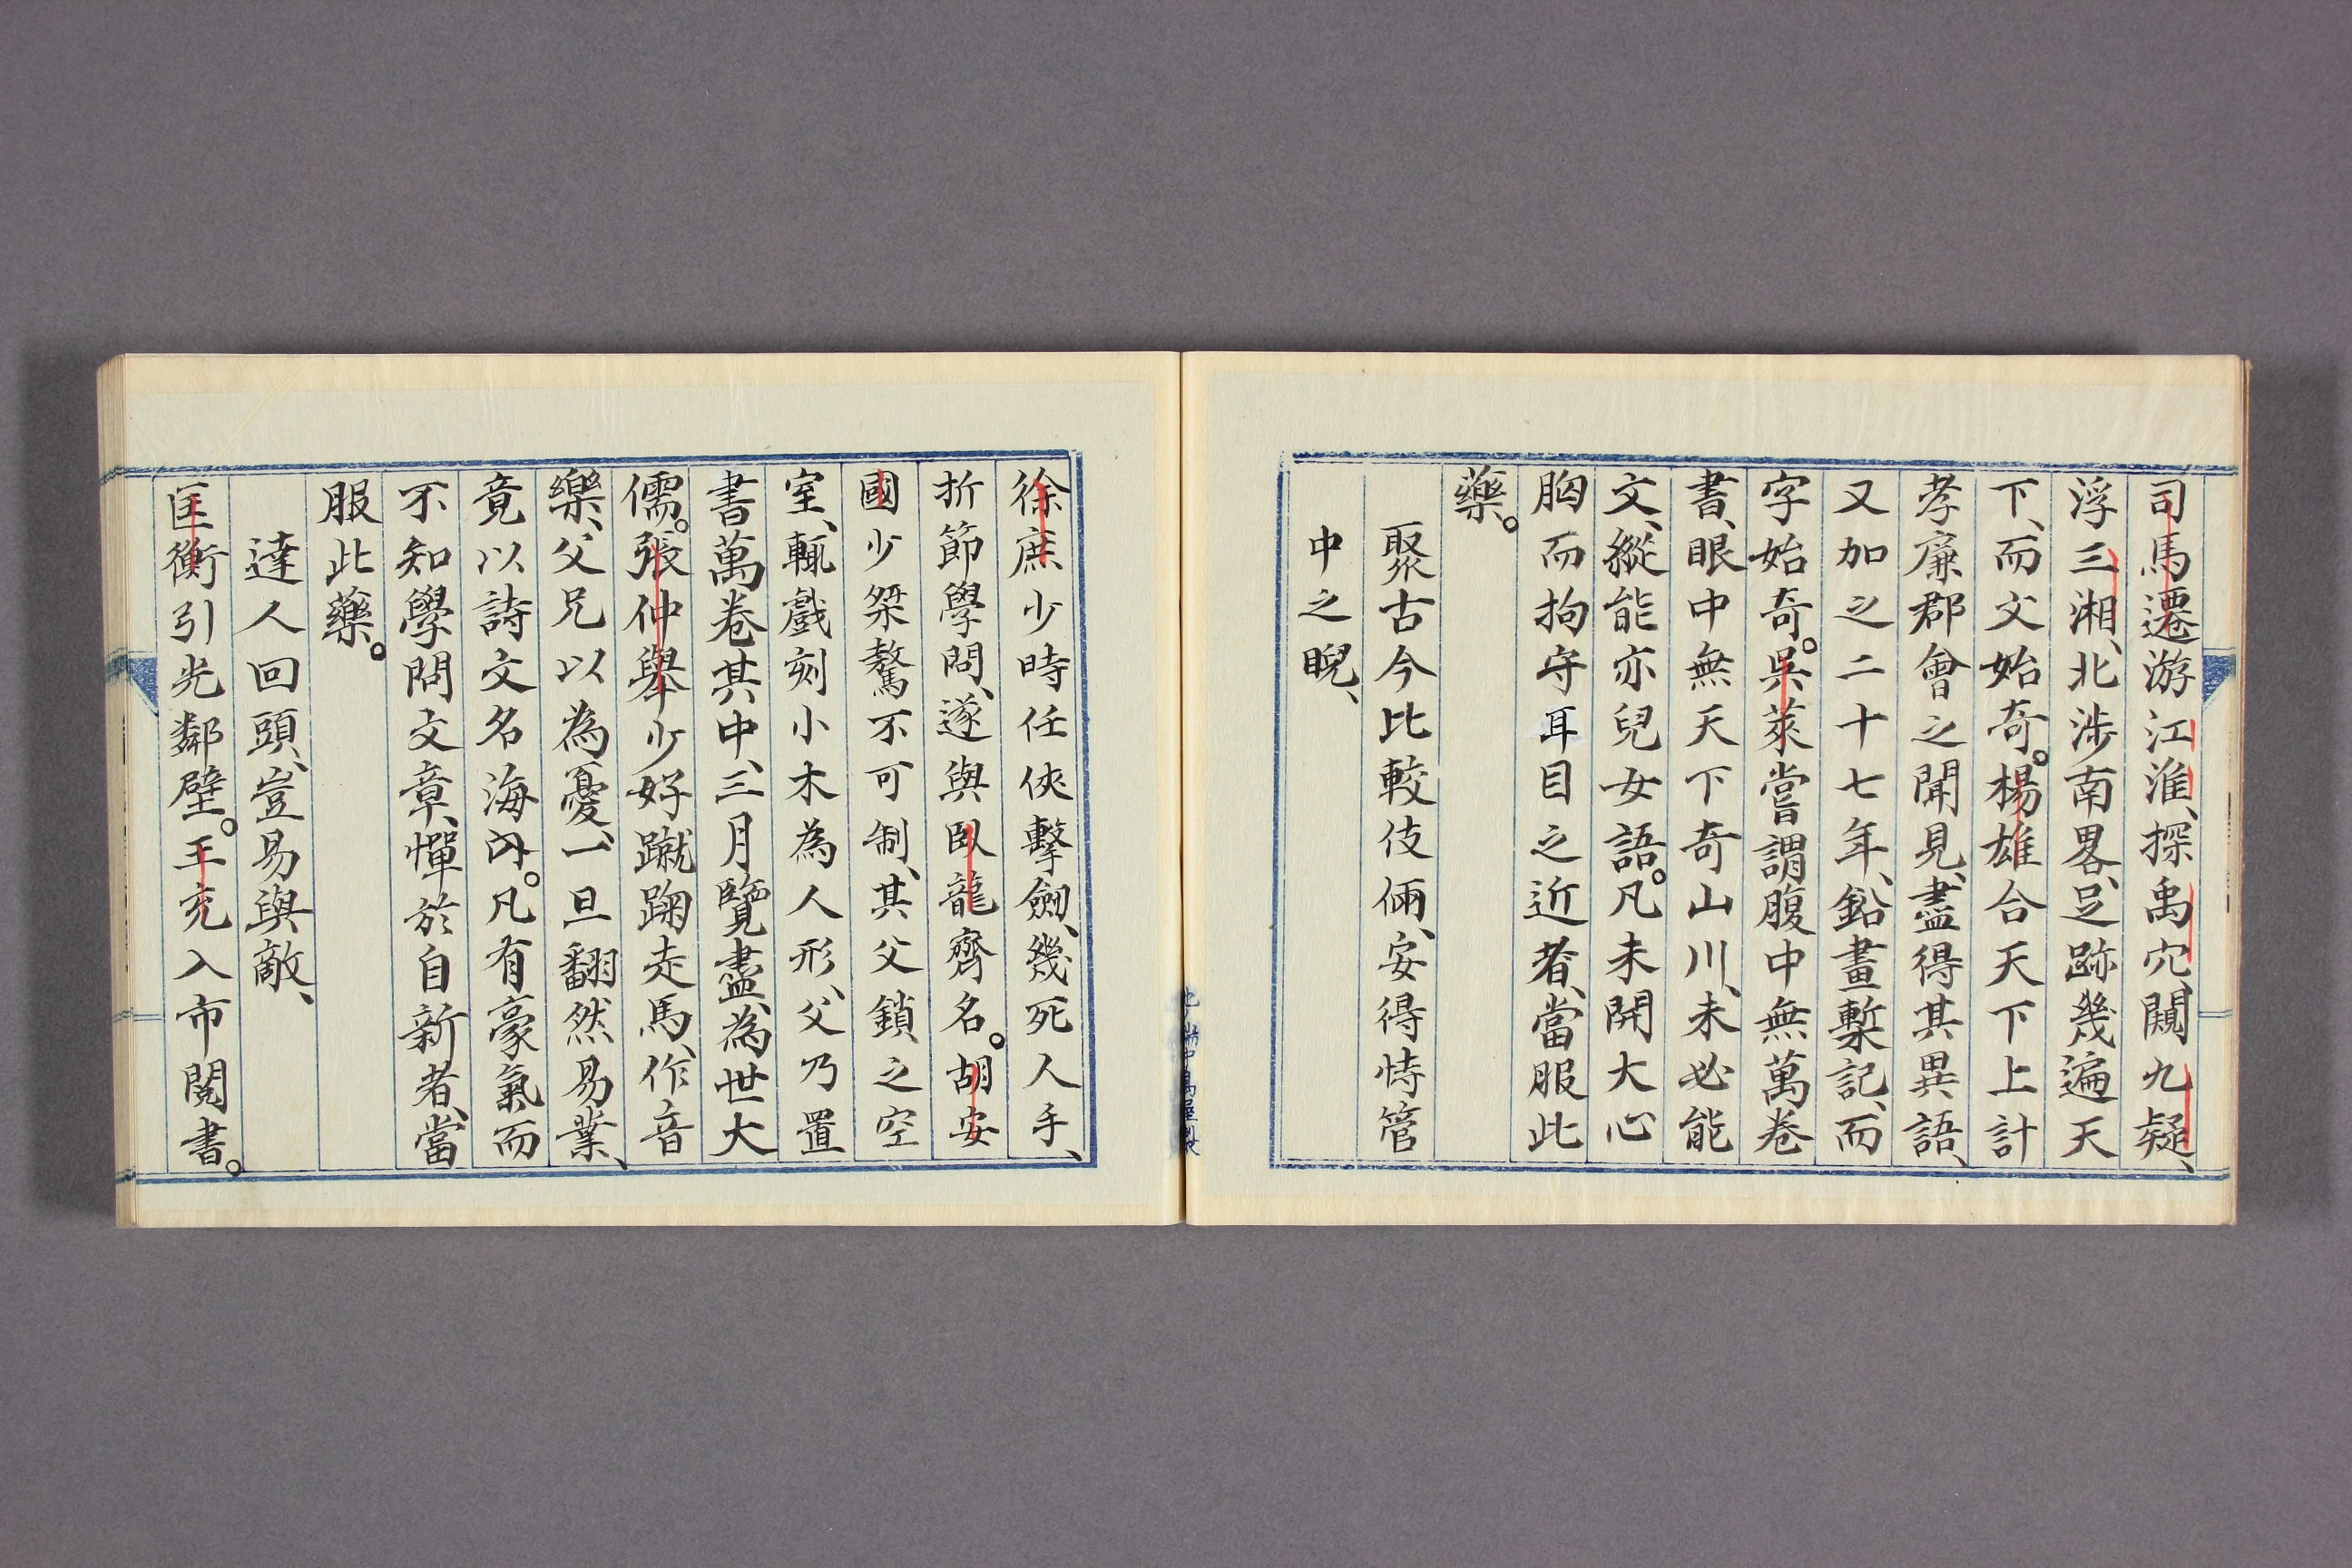 司馬遷游江淮、探禹穴、闚九疑、
浮三湘、北涉南畧、足跡幾遍天
下、而父始奇。楊雄合天下上計
孝廉郡會之聞見、盡得其異語、
又加之二十七年、鉛畫槧記、而
字始奇。吳萊嘗謂腹中無萬卷
書、眼中無天下奇山川、未必能
文、縱能亦兒女語。凡未開大心
胸而拘守耳目之近者、當服此
藥。
聚古今比較伎倆、安得恃管
中之睨、
徐庶少時任俠擊劔、幾死人手、
折節學問、遂與臥龍齊名。胡安
國少桀驁不可制、其父鎖之空
室、輒戲刻小木為人形、父乃置
書萬卷其中、三月覽盡、為世大
儒。張仲舉少好蹴踘走馬、作音
樂、父兄以為憂、一旦翻然易業、
竟以詩文名海內。凡有豪氣而
不知學問文章、憚於自新者、當
服此藥。
達人回頭、豈易與敵、
匡衡引光鄰壁。王充入市閱書。